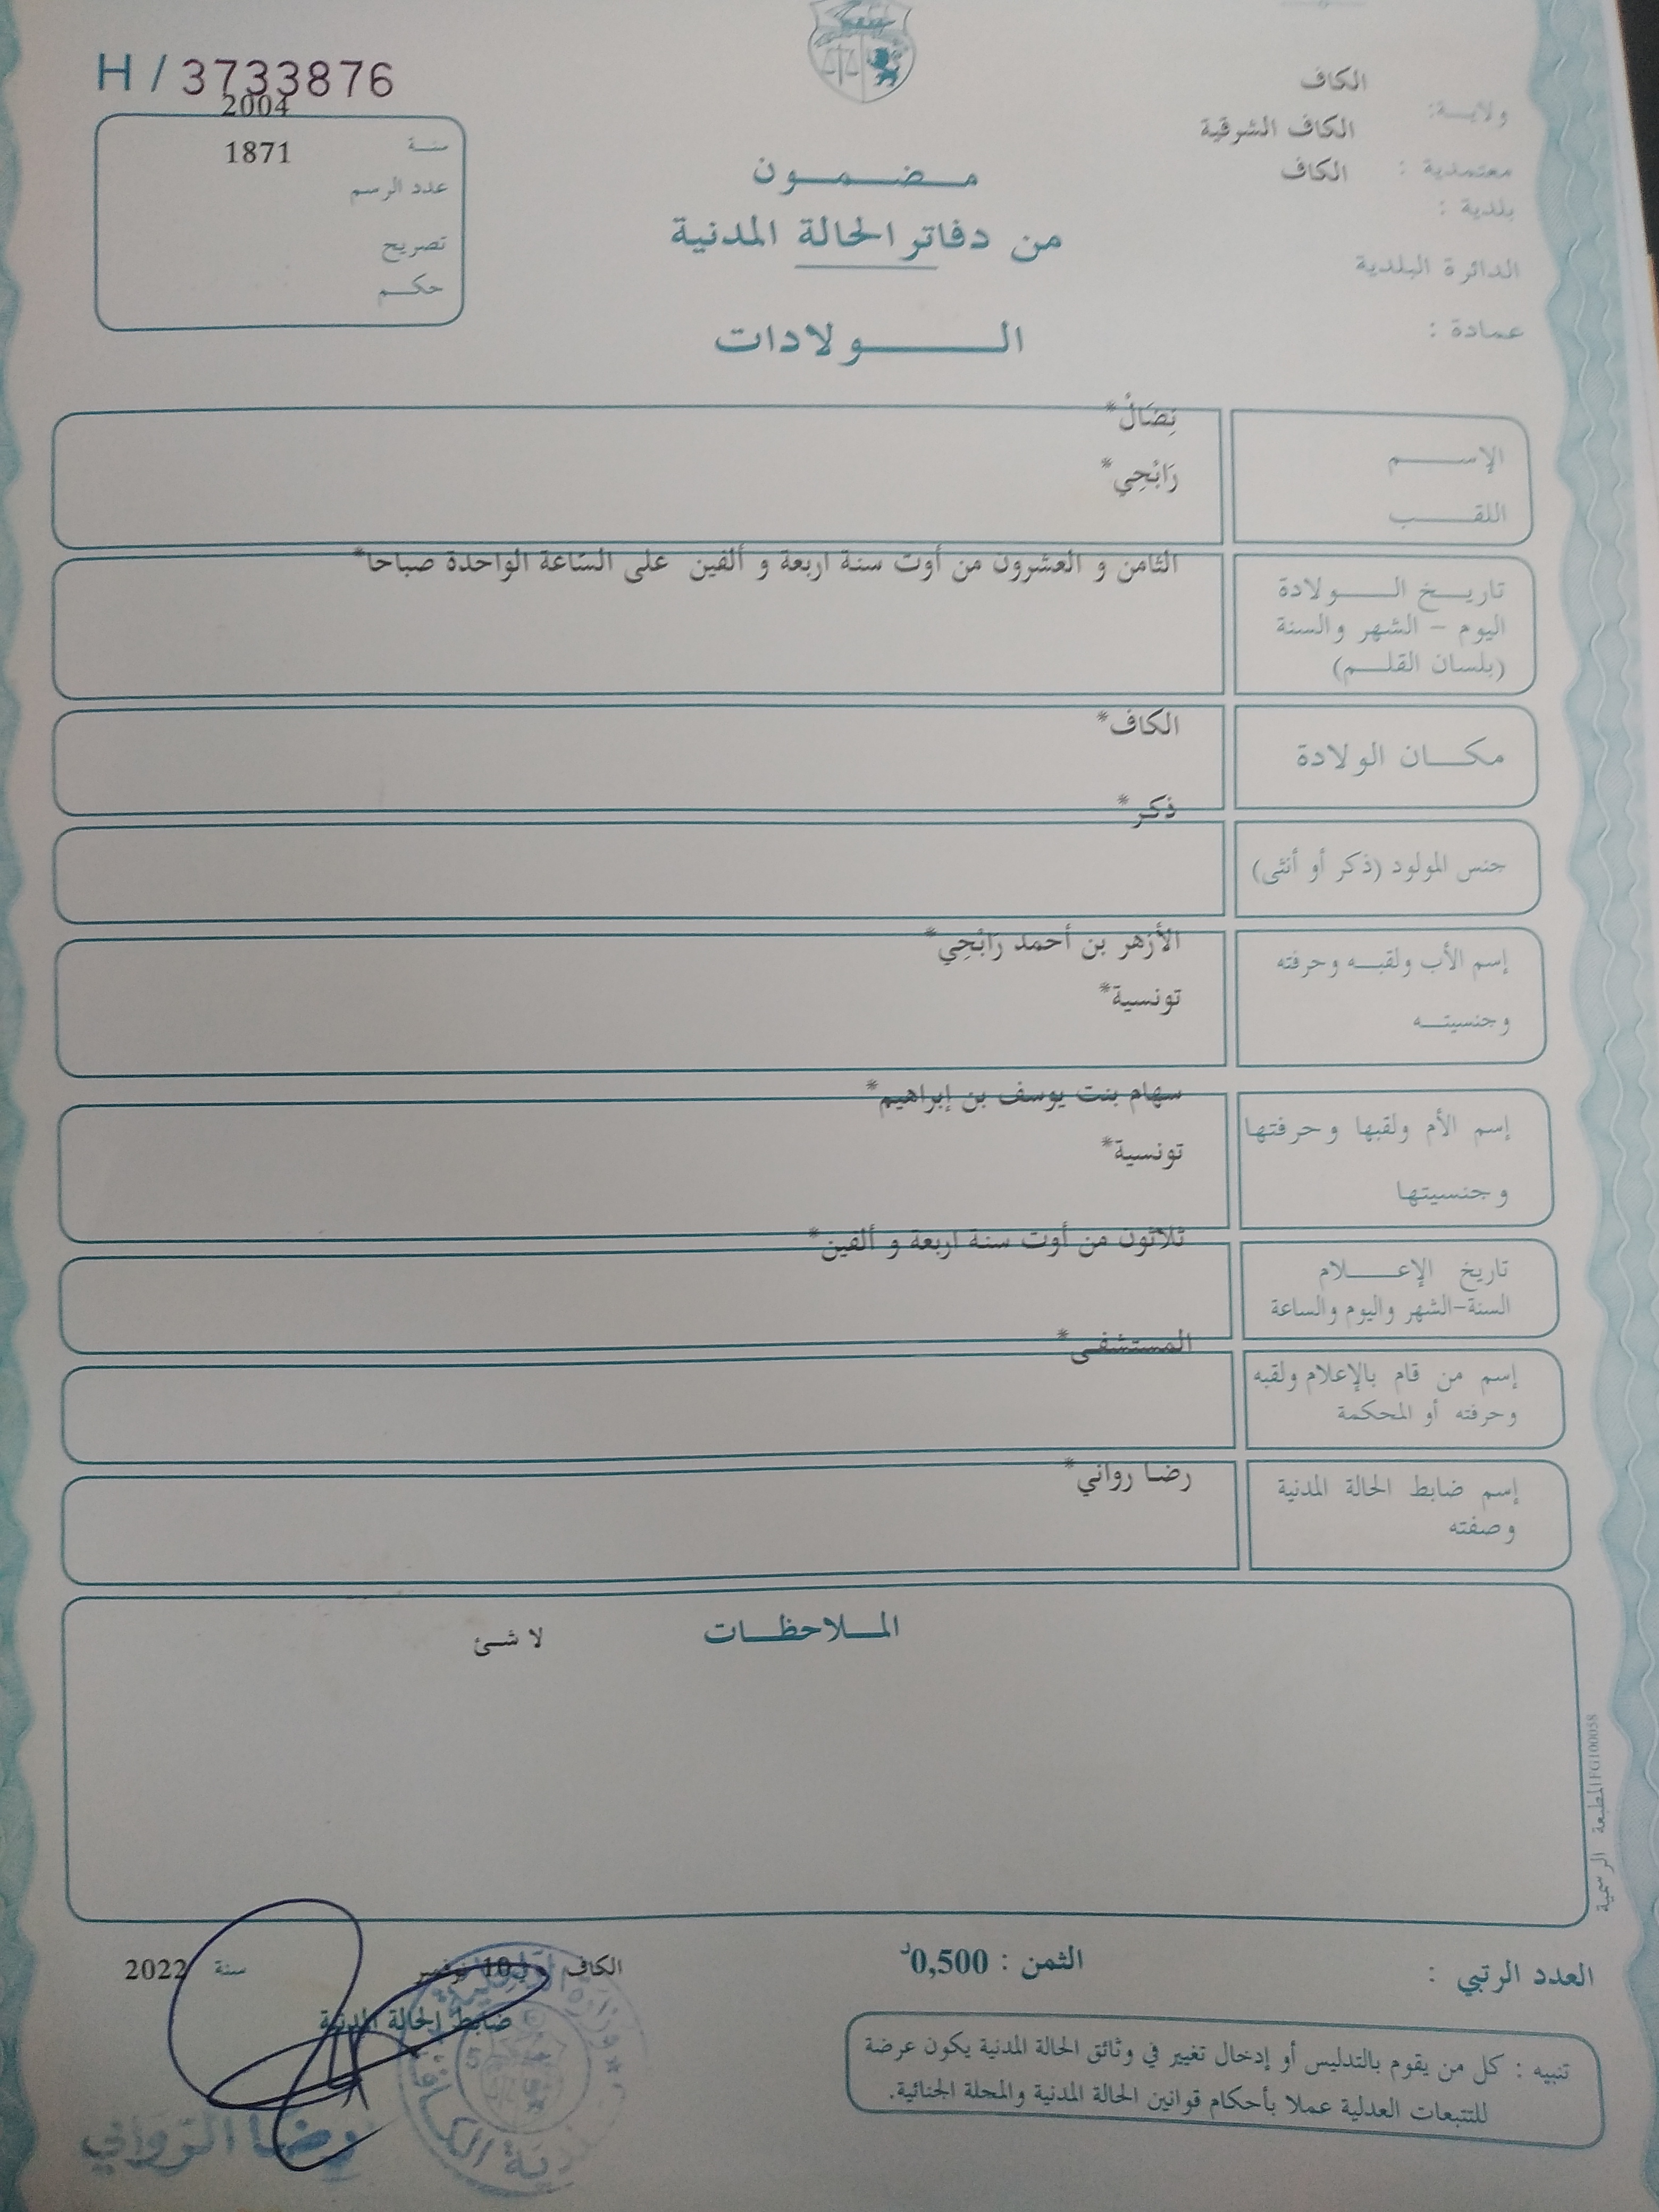 H / 3733876
2004
سنة
1871
عدد الرسم
تصريح
حكم
الكاف
ولاية:
الكاف الشرقية
معتمدية :
الكاف
بلدية :
الدائرة البلدية
عمادة :
مضمون
من دفاتر الحالة المدنية
الولادات
نِضَالْ*
الإسم
رَابْحِي*
اللقب
الثامن و العشرون من أوت سنة اربعة و ألفين على السّاعة الواحدة صباحا*
تاريخ الولادة
اليوم - الشهر والسنة
(بلسان القلم)
الكاف*
مكان الولادة
ذكر*
جنس المولود (ذكر أو أنثى)
الأزهر بن أحمد رَابْحِي*
إسم الأب ولقبه وحرفته
تونسية*
وجنسيته
سهام بنت يوسف بن إبراهيم*
إسم الأم ولقبها وحرفتها
تونسية*
وجنسيتها
ثلاثون من أوت سنة اربعة و ألفين*
تاريخ الإعلام
السنة-الشهر واليوم والساعة
المستشفى*
إسم من قام بالإعلام ولقبه
وحرفته أو المحكمة
رضا رواني*
إسم ضابط الحالة المدنية
وصفته
الملاحظات
لا شئ
المطبعة الرسمية FG100058
العدد الرتبي :
الثمن : 0,500د
الكاف في 10 نوفمبر سنة 2022
ضابط الحالة المدنية
رضا الرواني
تنبيه : كل من يقوم بالتدليس أو إدخال تغيير في وثائق الحالة المدنية يكون عرضة
للتتبعات العدلية عملا بأحكام قوانين الحالة المدنية والمجلة الجنائية.